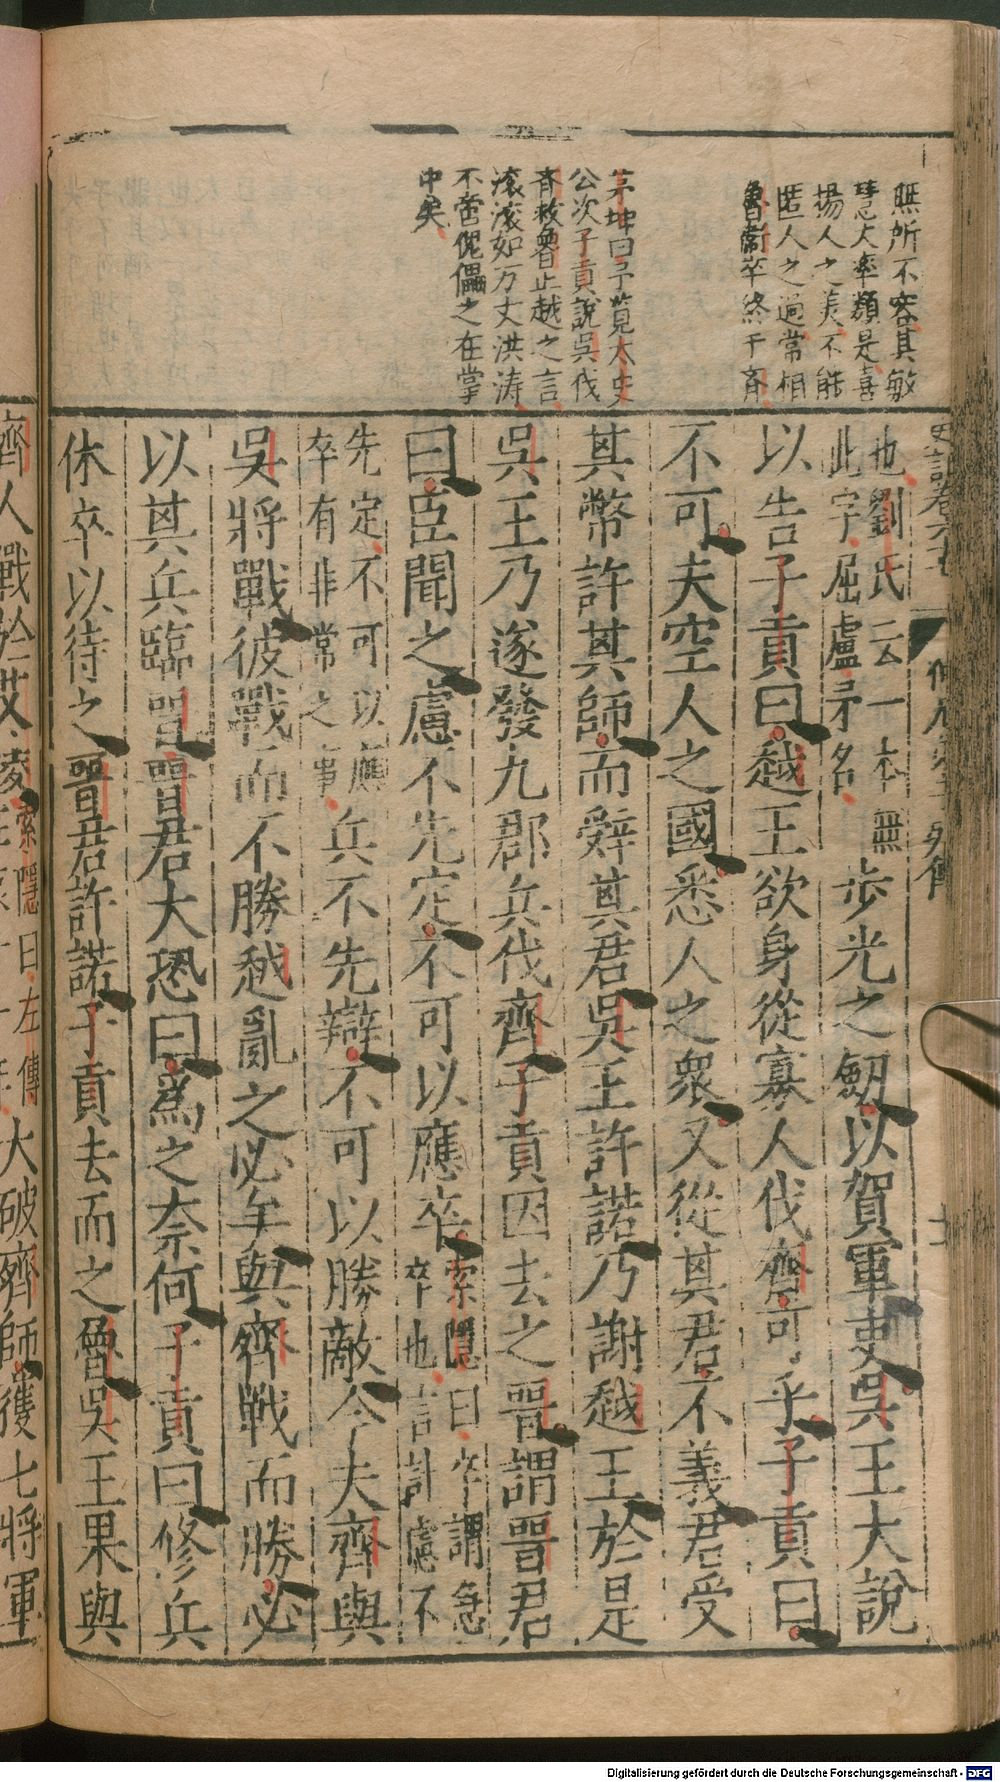 無所不容其敏
慧大率類是喜
揚人之美不能
匿人之過常相
魯衛卒終于齊
茅坤曰予覽太史
公次子貢說吳伐
齊救魯止越之言
滾滾如万丈洪涛
不啻傀儡之在掌
中矣
史記卷六十七
仲尼弟子列傳
也劉氏云一本無
此字屈盧矛名
步光之劔以賀軍吏吳王大說
以告子貢曰越王欲身從寡人伐齊可乎子貢曰
不可夫空人之國悉人之衆又從其君不義君受
其幣許其師而辤其君吳王許諾乃謝越王於是
吳王乃遂發九郡兵伐齊子貢因去之晉謂晉君
曰臣聞之慮不先定不可以應卒
索隱曰卒謂急
卒也言計慮不
先定不可以應
卒有非常之事
兵不先辯不可以勝敵今夫齊與
吳將戰彼戰而不勝越亂之必矣與齊戰而勝必
以其兵臨晉晉君大恐曰爲之奈何子貢曰修兵
休卒以待之晉君許諾子貢去而之魯吳王果與
齊人戰於艾陵
索隱曰左傳
大破齊師獲七將軍
Digitalisierung gefördert durch die Deutsche Forschungsgemeinschaft - DFG